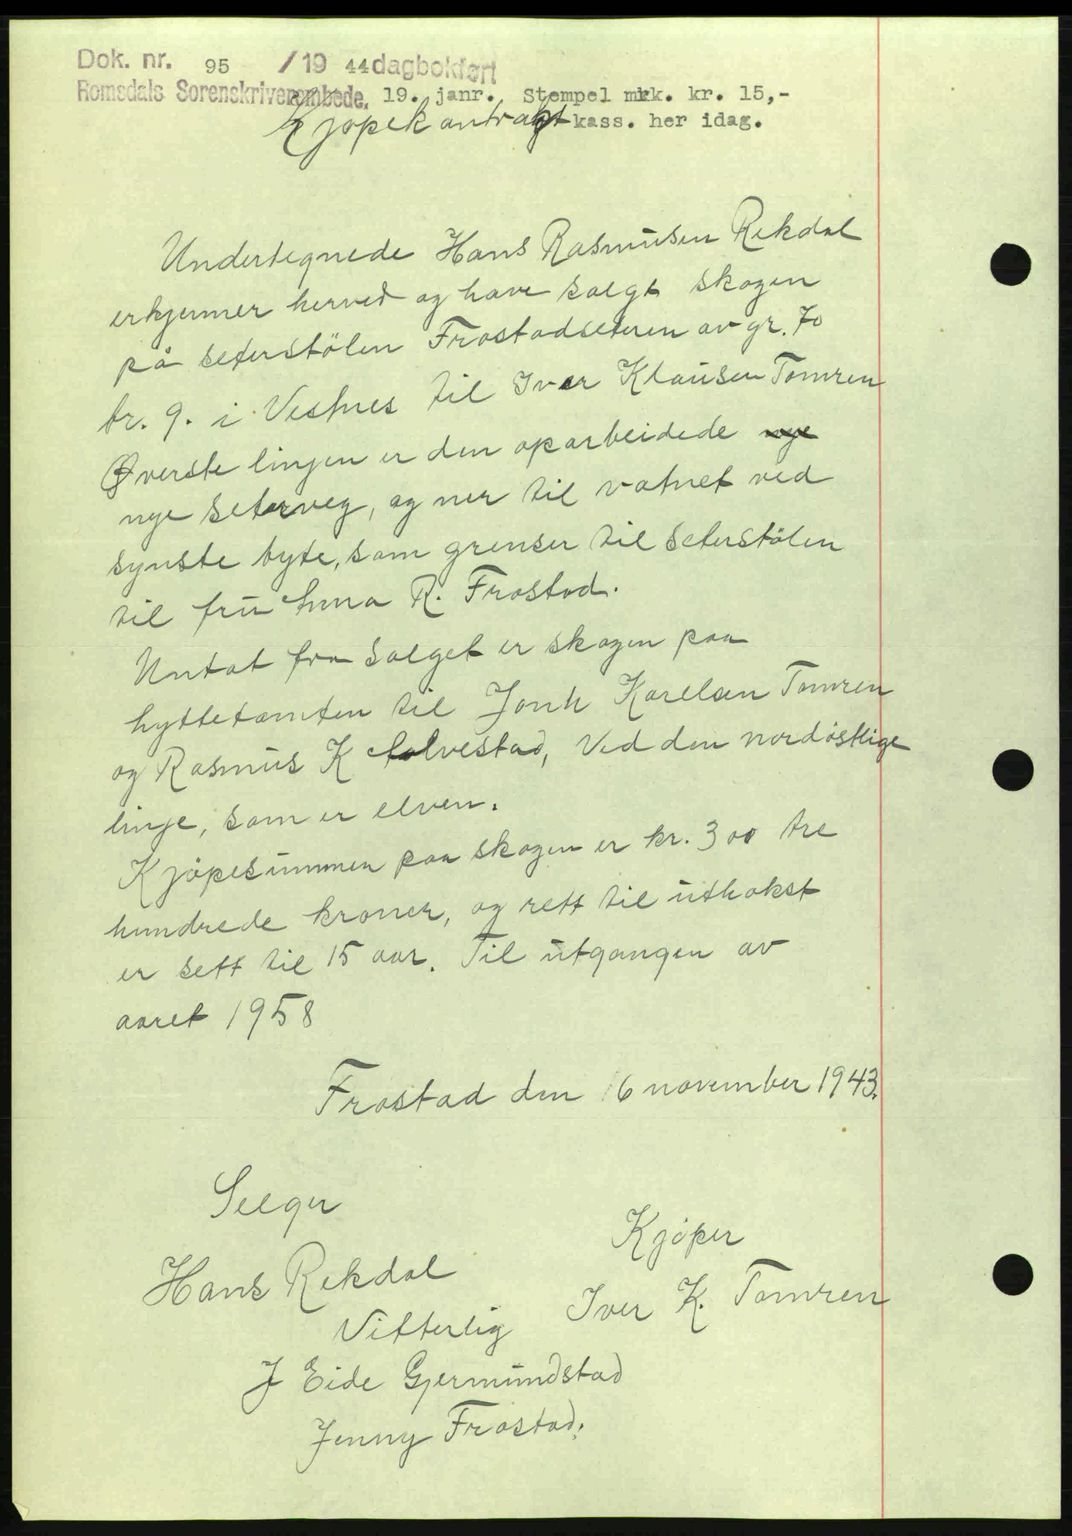 Dok. nr. 95 / 19 44 dagbokført
Romsdals Sorenskriverembede, 19. janr. Stempel mkk. kr. 15,-
Kjøpekontrakt kass. her idag.
Undertegnede Hans Rasmusen Rekdal
erkjenner herved og have solgt skogen
på seterstölen Frostadseteren av gr. 70
br. 9. i Vestnes til Iver Klausen Tomren
Øverste linjen er den oparbeidede nye
nye seterveg, og ner til vatnet ved
synste byte, som grenser til seterstölen
til fru Anna R. Frostad.
Untat fra salget er skogen paa
hyttetomten til Jonh Karelsen Tomren
og Rasmus K Salvestad, Ved den nordöstlige
linje, som er elven.
Kjöpesummen paa skogen er kr. 300 tre
hundrede kroner, og rett til uthokst
er sett til 15 aar. Til utgangen av
aaret 1958
Frostad den 16 november 1943.
Selger
Kjöper
Hans Rekdal
Iver K. Tomren
Vitterlig
J Eide Gjermundstad
Jenny Frostad.